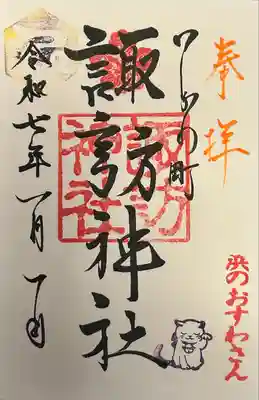 奉拝
浜のおすわさん
諏訪神社
諏訪
神社
令和七年一月一日